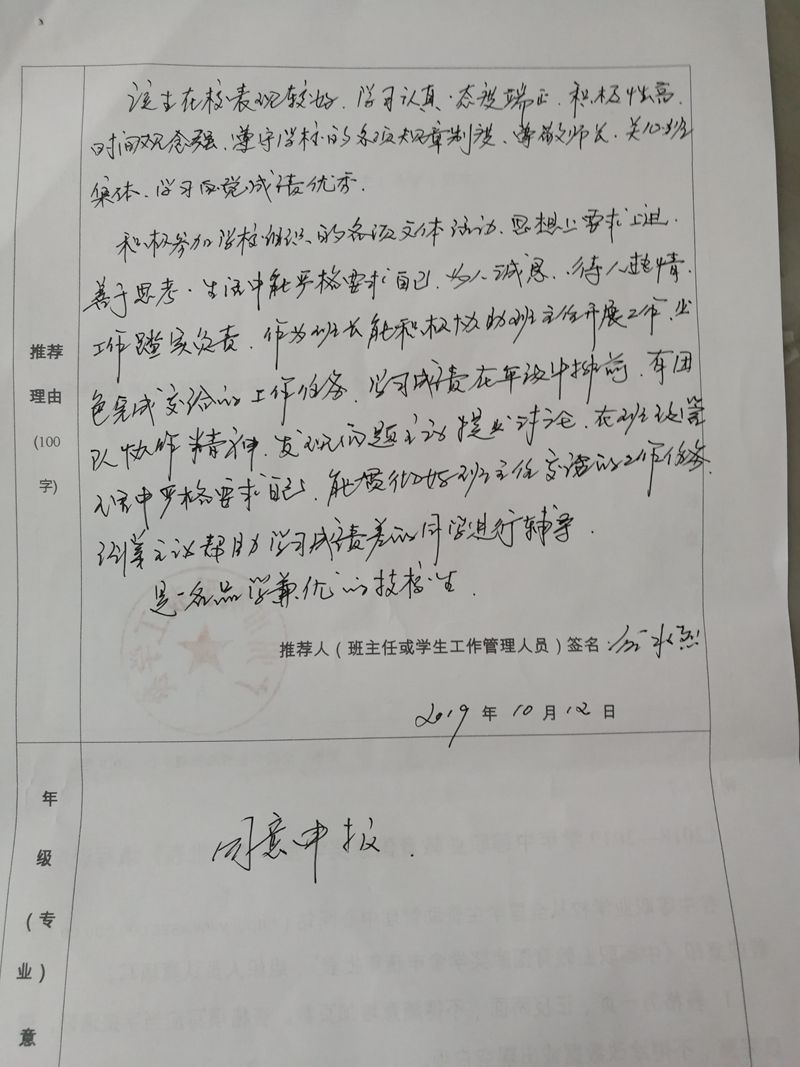 推荐
理由
(100
字)
该生在校表现较好、学习认真、态度端正、积极性高、
时间观念强、遵守学校的各项规章制度、尊敬师长、关心班
集体、学习自觉成绩优秀.
积极参加学校组织的各项文体活动、思想上要求上进.
善于思考.生活中能严格要求自己、为人诚恳、待人热情、
工作踏实负责、作为班长能积极协助班主任开展工作、出
色完成交给的工作任务、学习成绩在年级中排前、有团
队协作精神、发现问题主动提出讨论、在班主任
中严格要求自己、能贯彻好班主任交话的工作任务.
主动帮助学习成绩差的同学进行辅导.
是一名品学兼优的技校生.
推荐人(班主任或学生工作管理人员)签名:
2019 年 10 月 12 日
年
级
(专
业)
意
同意申报.